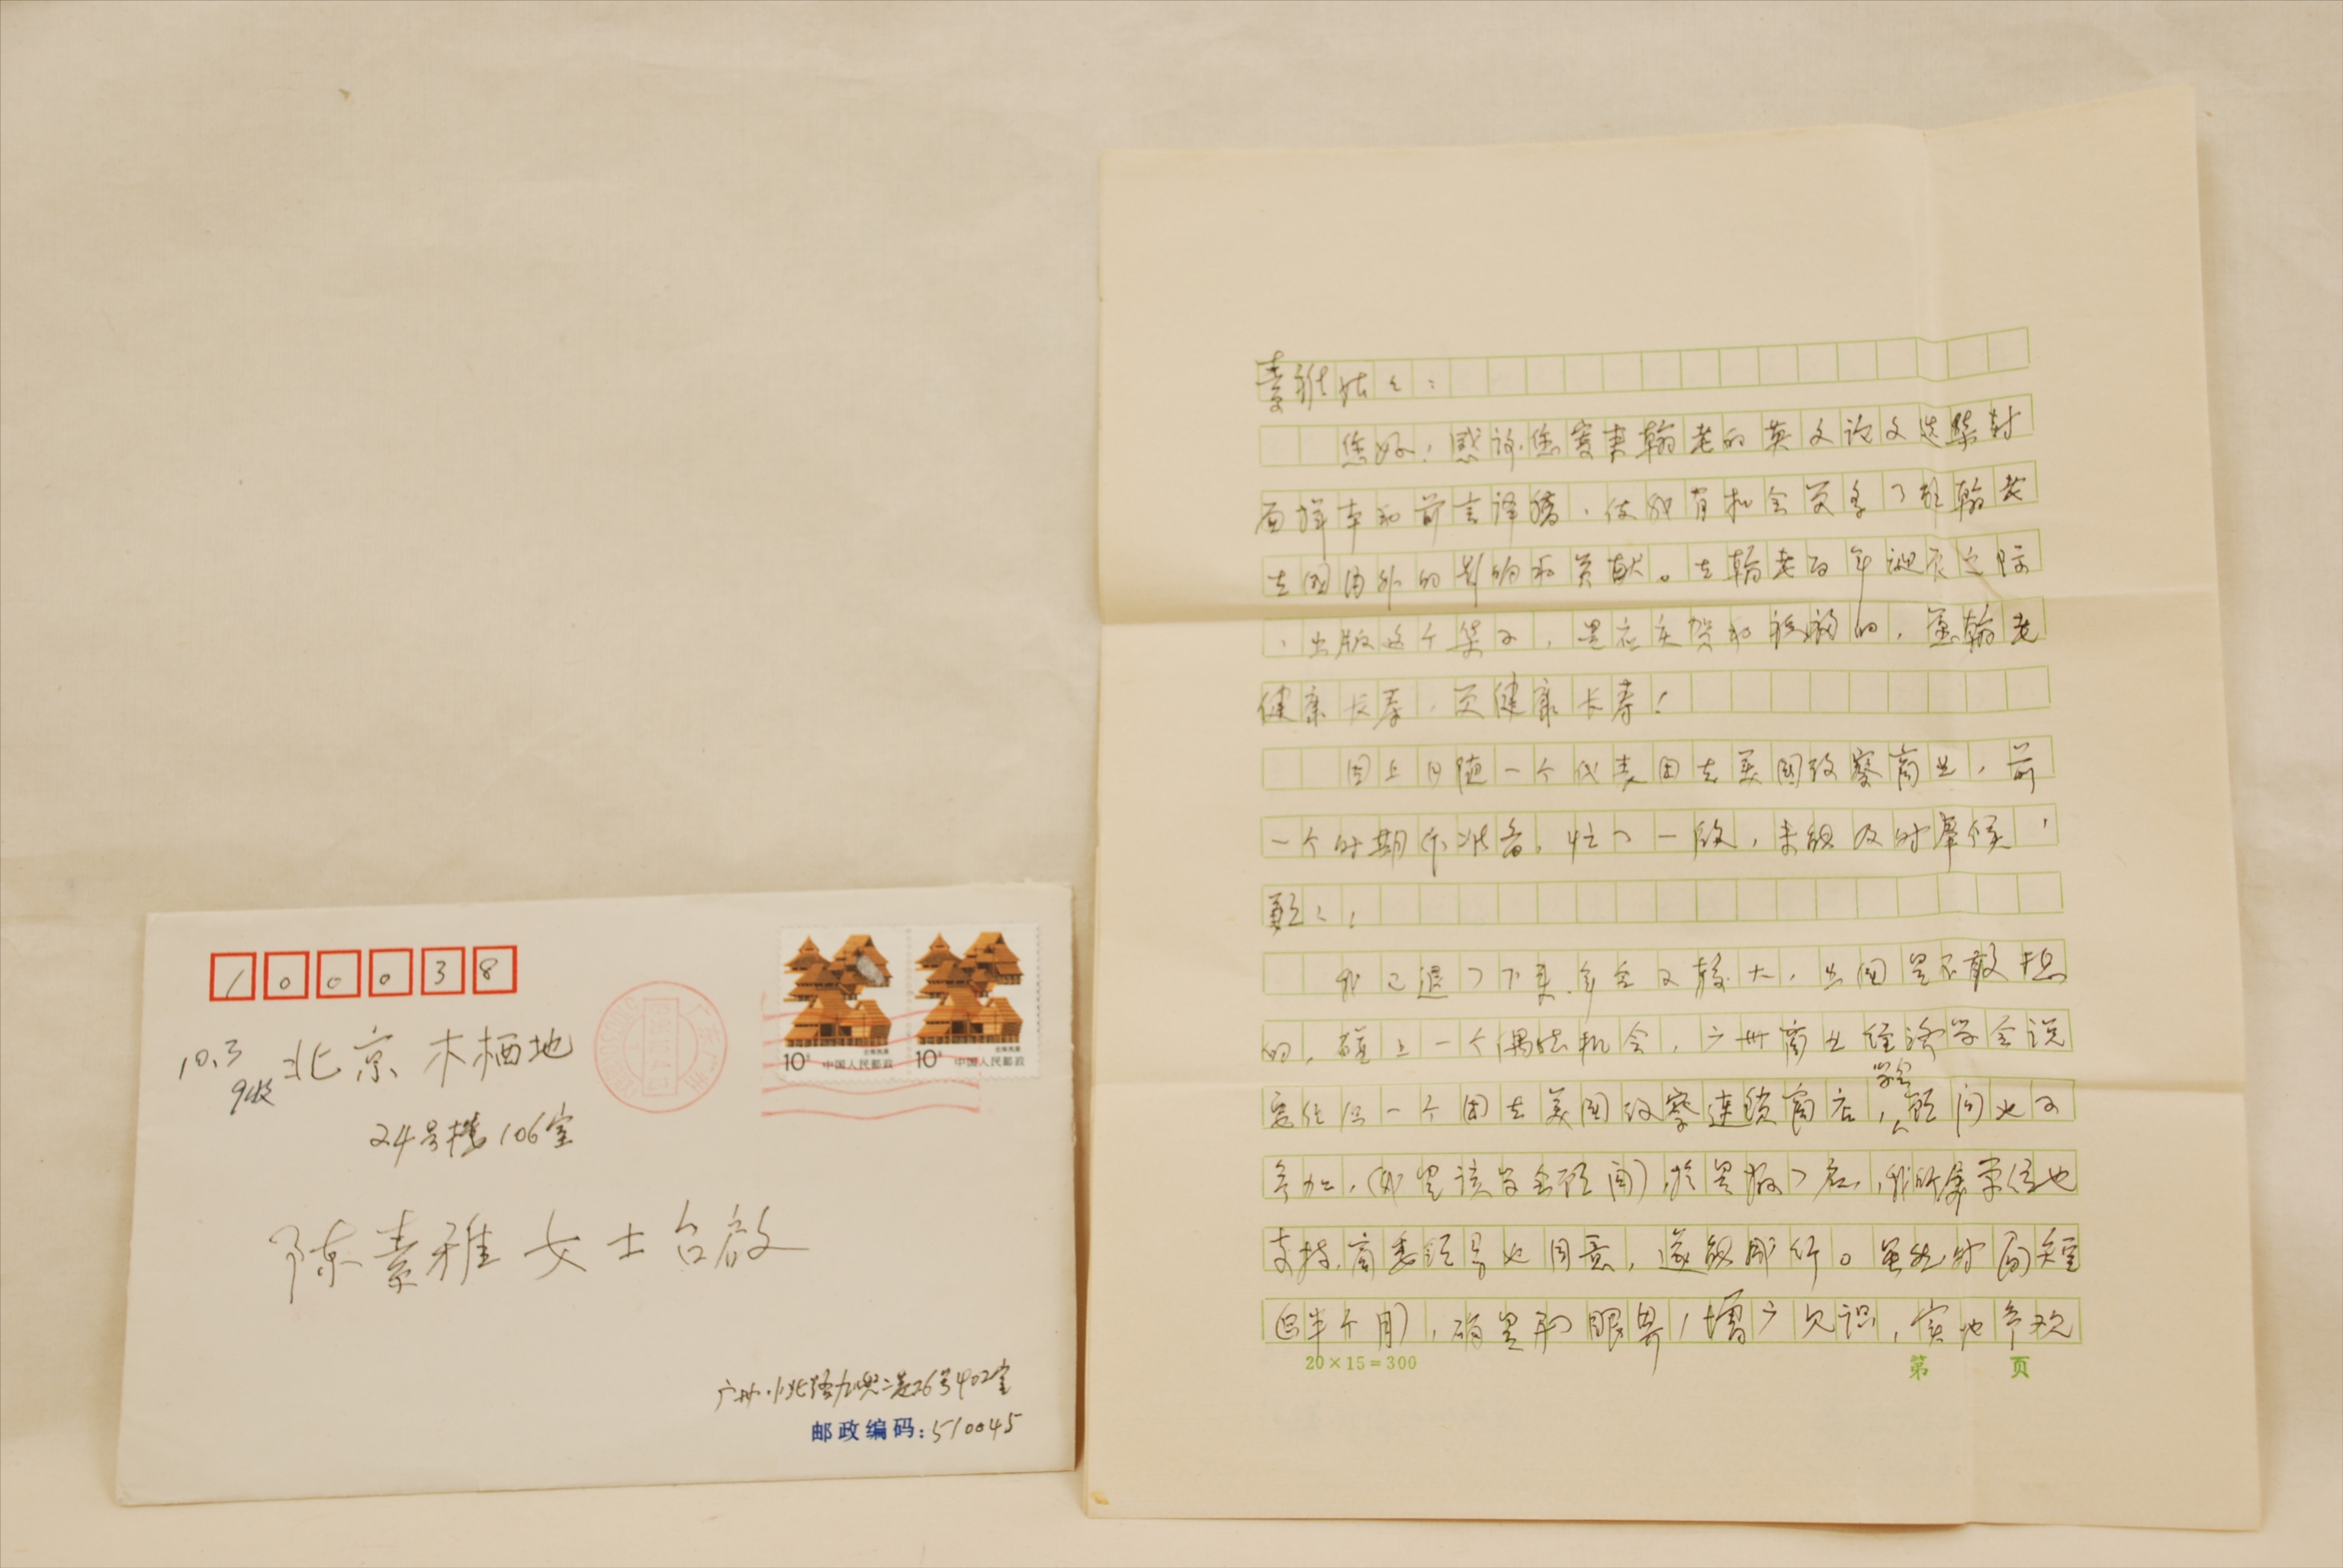 100038
10.3
收
北京木樨地
24号楼106室
陈素雅女士台启
广州小北路九?二巷26号402室
邮政编码：510045
10分 中国人民邮政
10分 中国人民邮政
素雅姑之：
您好！感谢您寄来翰老的英文论文选集封
面样本和前言译稿，使我有机会更多了解翰老
在国内外的影响和贡献。在翰老百年诞辰之际
，出版这个集子，是应庆贺和祝福的，愿翰老
健康长寿，更健康长寿！
因上月随一个代表团去美国考察商业，前
一个时期作准备，忙了一段，未能及时奉候，
歉之，
我已退了下来，年令又较大，出国是不敢想
的，碰上一个偶然机会，广州商业经济学会说
要组织一个团去美国考察连锁商店，学会顾问也可
参加，（我是该学会顾问）于是报了名，我所属单位也
支持，商委领导也同意，遂能成行。虽然时间短
（半个月），确是开眼界，增广见识，实地参观
20×15=300
第 页